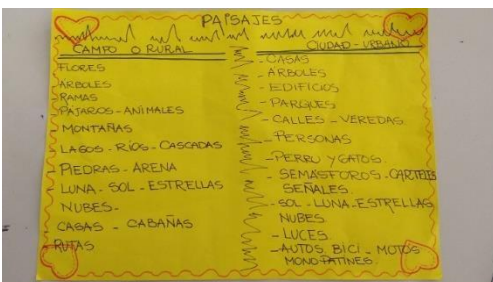 PAISAJES
CAMPO O RURAL
FLORES
ARBOLES
RAMAS
PÁJAROS - ANIMALES
MONTAÑAS
LAGOS - RÍOS - CASCADAS
PIEDRAS - ARENA
LUNA - SOL - ESTRELLAS
NUBES -
CASAS - CABAÑAS
RUTAS
CIUDAD - URBANO
- CASAS
- ARBOLES
- EDIFICIOS
- PARQUES
- CALLES - VEREDAS
- PERSONAS
- PERRO Y GATOS
- SEMÁSFOROS - CARTELES
SEÑALES.
- SOL - LUNA - ESTRELLAS
NUBES.
- LUCES
- AUTOS. BICI - MOTOS
MONOPATINES.